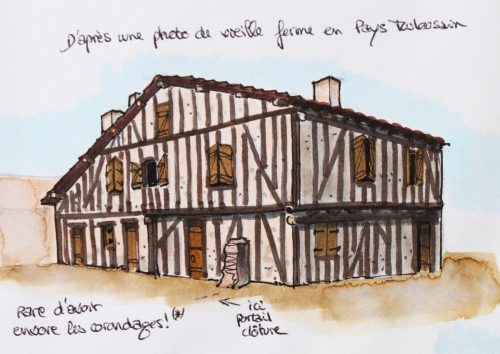 D'après une photo de vieille ferme en Pays Toulousain
rare d'avoir
encore les corondages! (*)
ici
portail
clôture